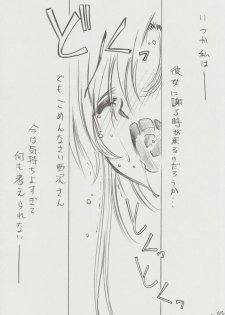 いつか私は――
彼女に謝る時が来るのだろうか…
どくんっ
でもごめんなさい野沢さん
今は気持ちよすぎて
何も考えられない――
どくっ
どくっ